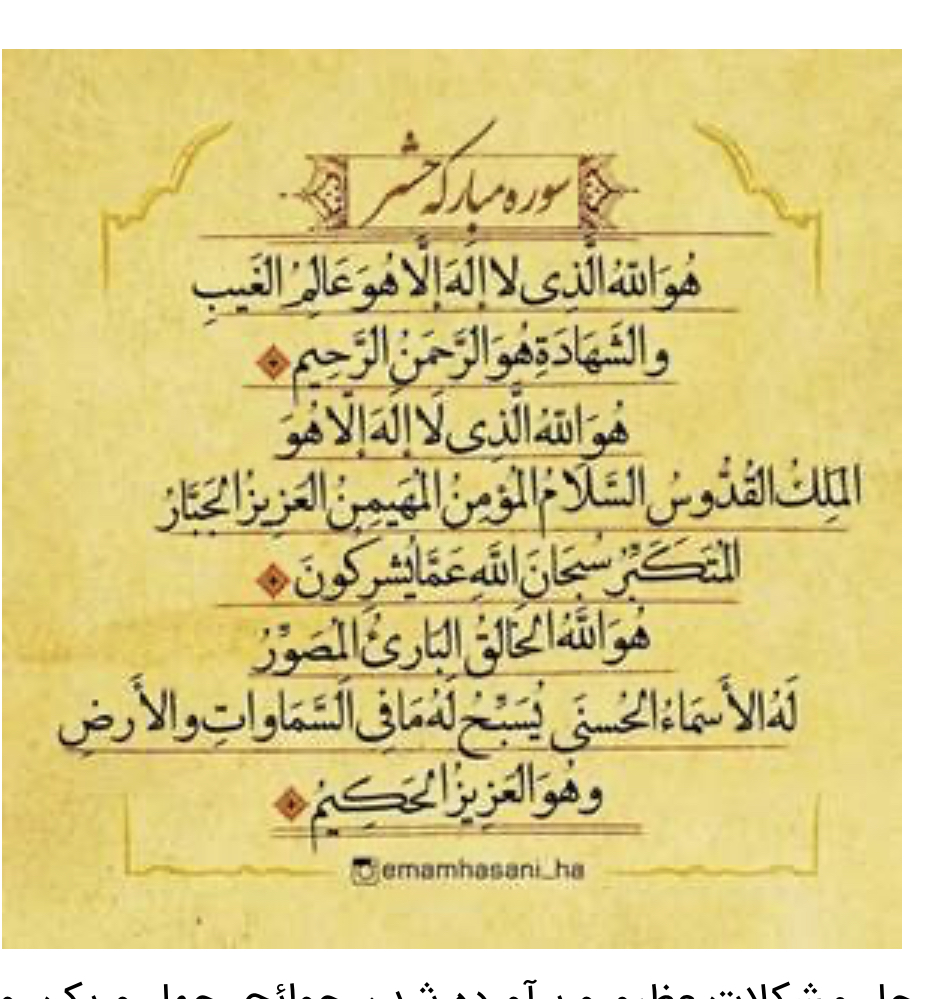 سوره مبارکه حشر
هُوَ اللّٰهُ الَّذِی لا إِلَهَ إِلَّا هُوَ عَالِمُ الغَیبِ
والشَّهَادَةِ هُوَ الرَّحمَنُ الرَّحِیم
هُوَ اللّٰهُ الَّذِی لَا إِلَهَ إِلَّا هُوَ
المَلِكُ القُدُّوسُ السَّلَامُ المُؤمِنُ المُهَیمِنُ العَزِیزُ الجَبَّارُ
المُتَكَبِّرُ سُبحَانَ اللَّهِ عَمَّا یُشرِكُونَ
هُوَ اللَّهُ الخَالِقُ البَارِئُ المُصَوِّرُ
لَهُ الأَسمَاءُ الحُسنَی یُسَبِّحُ لَهُ مَا فِی السَّمَاوَاتِ والأَرضِ
وهُوَ العَزِیزُ الحَكِیمُ
emamhasani_ha